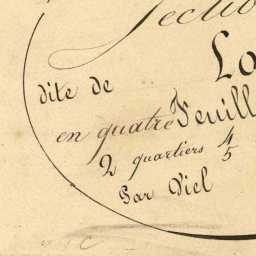 Sectio
Lo
dite de
en quatre Feuill
2 quartiers 4/5
Par Viel